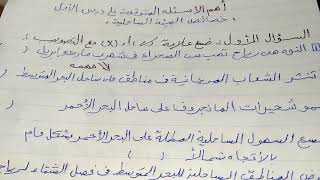 أهم الأسئلة المتوقعة في درس الأول
خصائص البيئة الساحلية
السؤال الأول: ضع علامة (✓) أو (x) مع التصويب
رياح تهب من الصحراء في شهرى مارس وابريل
تنتشر الشعاب المرجانية في مناطق على ساحل البحر المتوسط
نمو شجيرات المانجروف على ساحل البحر الأحمر
السهول الساحلية المطلة على البحر الأحمر بشكل عام
بالاتجاه شمالاً ( )
المناطق الساحلية للبحر المتوسط في فصل الشتاء لرياح